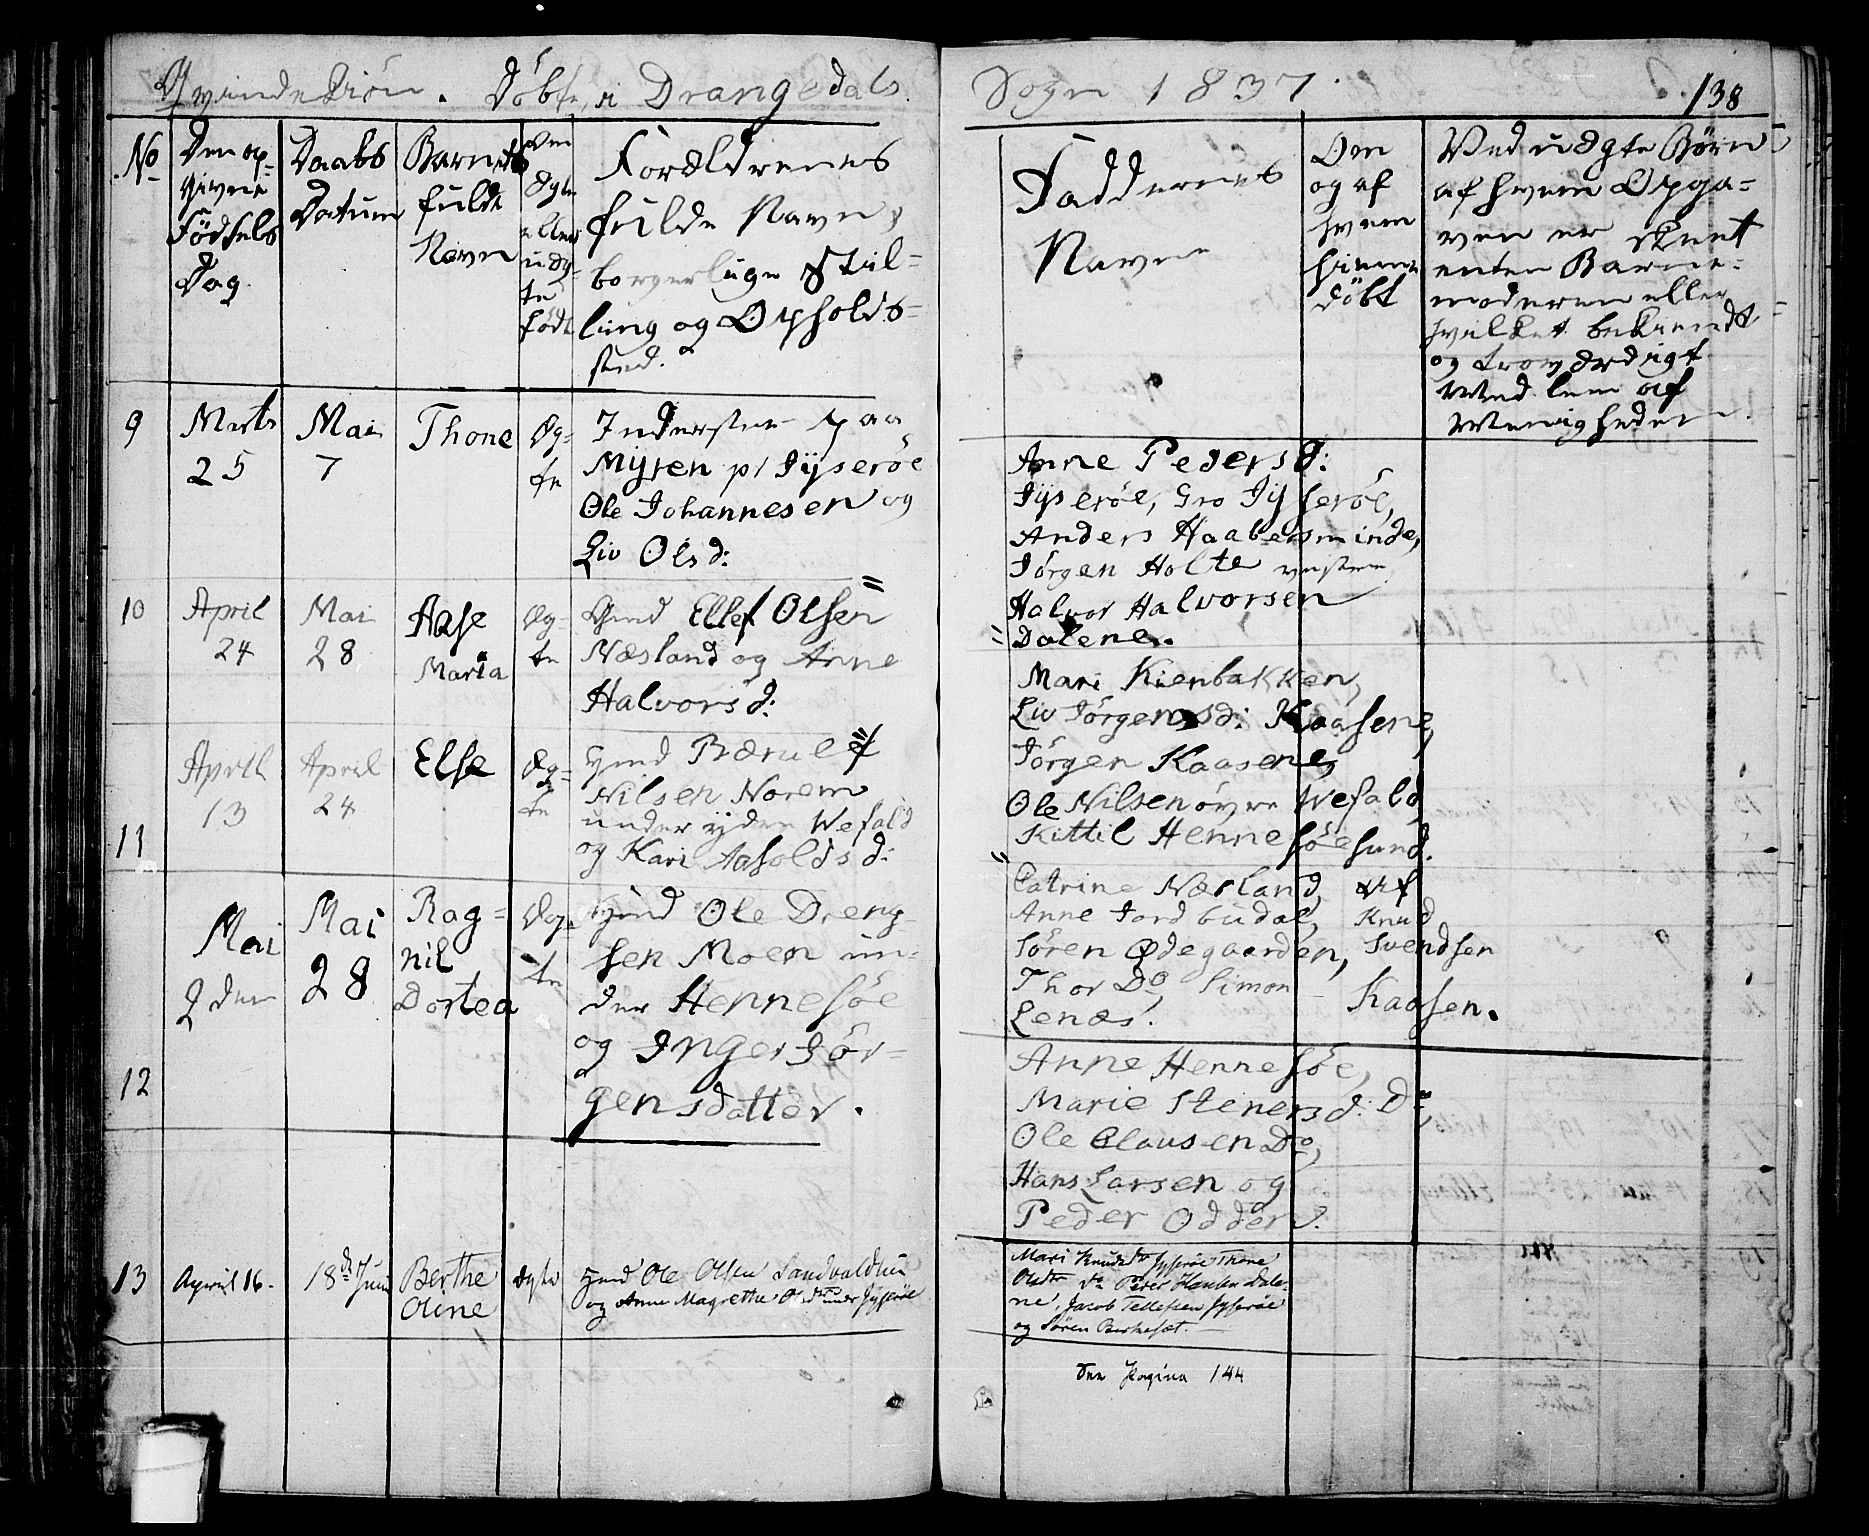 Qvindekiön. Döbte i Drangedals Sogn 1837.
138
No
Den op-
givne
Födsels
Dag
Daabs
Datum
Barnets
fulde
Navn
Om
Ægte
eller
uæg-
te
födt
Forældrenes
fulde Navn,
borgerlige Stil-
ling og Opholds-
sted.
Faddernes
Navne
Om
og af
hvem
hiemme
döbt
Ved uægte Börn
af hvem Opga-
ven er skeet
enten Barne-
moderen eller
hvilket bekiendt
og troværdigt
Med lem af
Menigheden.
9
Marts
25
Mai
7
Thone
Æg-
te
Inderste paa
Myren p/ Jyseröe
Ole Johannesen og
Liv Olsd:
Anne Pedersd:
Jyseröe, Gro Jysseröe,
Anders Haabesminde,
Jörgen Holte vestre
Halvor Halvorsen
Dalene.
10
April
24
Mai
28
Aase
Maria
Æg-
te
Gmd Ellef Olsen
Næsland og Anne
Halvorsd:
Mari Kienbakken,
Liv Jörgensd: Kaasene,
Jörgen Kaasene,
Ole Nilsen övre Wefald,
Kittil Hennesöesund.
11
April
13
April
24
Else
Æg-
te
Hmd Bærulf
Nilsen Norem
under ydre Wefald
og Kari Aasoldsd:
Catrine Næsland,
Anne Jordbudal,
Sören Ødegaarden,
Thor Do, Simon
Lenæs.
Af
Knud
Svendsen
Kaasen.
12
Mai
2den
Mai
28
Rag-
nil
Dortea
Æg-
te
Hmd Ole Dreng-
sen Moen un-
der Hennesöe
og Inger Jör-
gensdatter.
Anne Hennesöe,
Marie Stenersd: Do,
Ole Clausen Do,
Hans Larsen og
Peder Odders.
13
April 16.
18de Juni
Berthe
Oline
Ægte
Hmd Ole Olsen Sandvaldlien
og Anne Magrethe Olsdtr under Jysseröe
Mari Knudsdtr Jysseröe Thone
Olsdtr do Peder Hansen Dale-
ne, Jacob Tellefsen Jysseröe
og Sören Berkesæt.
See Pagina 144